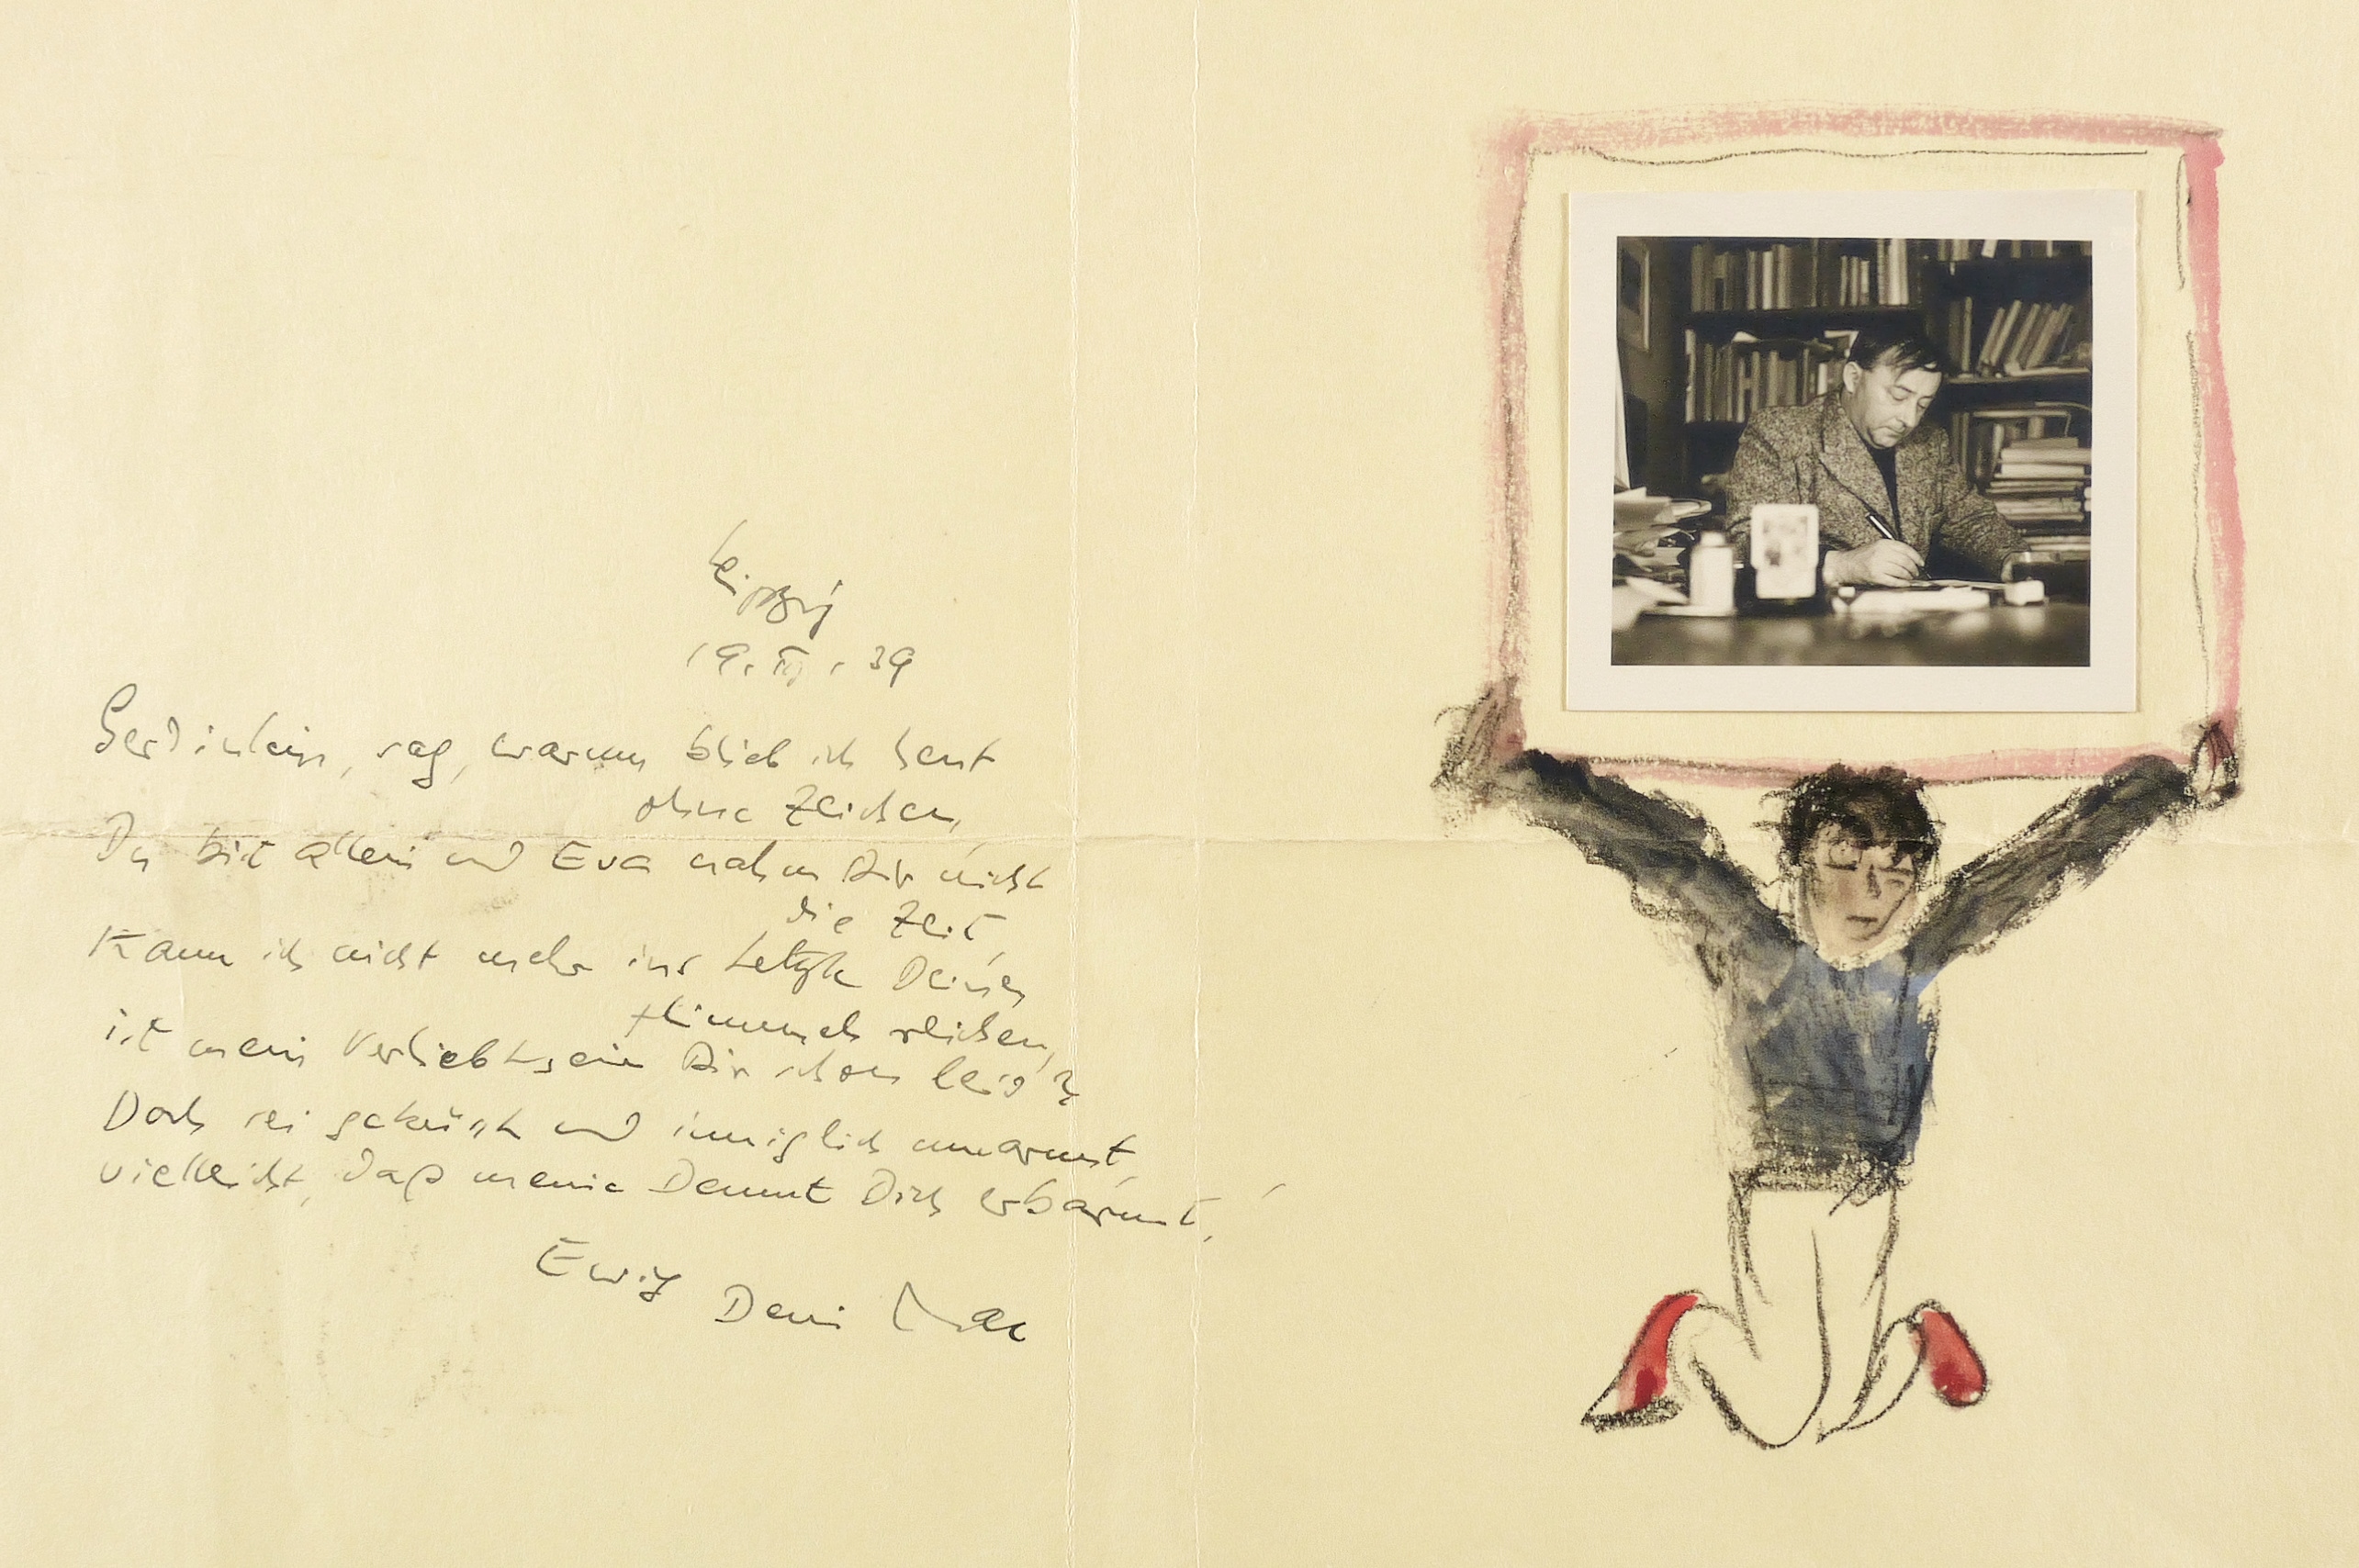 Leipzig
19. IV. 39
Gerdinlein, sag, warum blieb ich heut
ohne Zeichen,
Du bist allein und Eva nahm Dir nicht
die Zeit,
Kann ich nicht mehr ins Letzte Deines
Himmels reichen,
ist mein Verliebtsein Dir schon leid?
Doch sei geküsst und inniglich umarmt,
vielleicht, daß meine Demut Dich erbarmt.
Ewig
Dein Mac